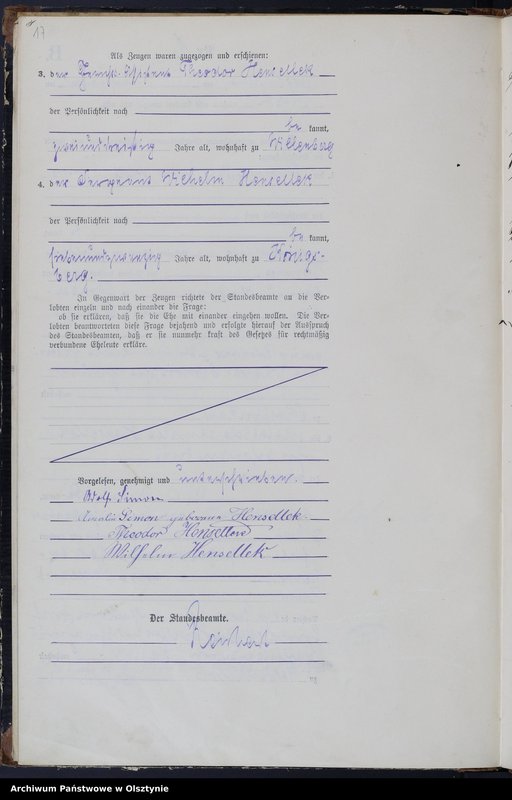 17
Als Zeugen waren zugezogen und erschienen:
3. der Theodor Hensellek
der Persönlichkeit nach
be kannt,
zweiunddreißig Jahre alt, wohnhaft zu Willenberg
4. der Sergeant Wilhelm Hensellek
der Persönlichkeit nach
be kannt,
siebenundzwanzig Jahre alt, wohnhaft zu Königs-
berg.
In Gegenwart der Zeugen richtete der Standesbeamte an die Ver-
lobten einzeln und nach einander die Frage:
ob sie erklären, daß sie die Ehe mit einander eingehen wollen. Die Ver-
lobten beantworteten diese Frage bejahend und erfolgte hierauf der Ausspruch
des Standesbeamten, daß er sie nunmehr kraft des Gesetzes für rechtmäßig
verbundene Eheleute erkläre.
Vorgelesen, genehmigt und unterschrieben.
Adolf Simon
Amalie Simon geborene Hensellek.
Theodor Hensellek
Wilhelm Hensellek
Der Standesbeamte.
Archiwum Państwowe w Olsztynie